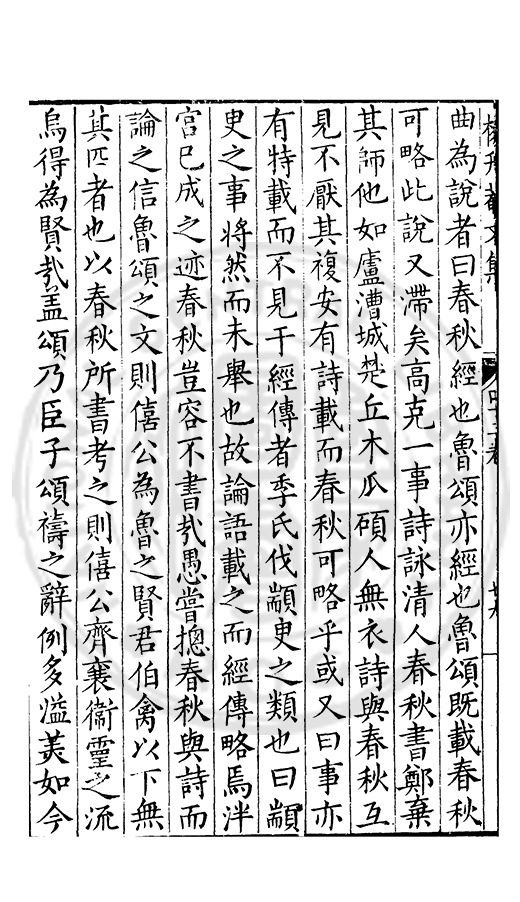 楊升菴文集
曲為說者曰春秋經也魯頌亦經也魯頌既載春秋
可略此說又滯矣高克一事詩詠清人春秋書鄭棄
其師他如盧漕城楚丘木瓜碩人無衣詩與春秋互
見不厭其複安有詩載而春秋可略乎或又曰事亦
有特載而不見于經傳者季氏伐顓臾之類也曰顓
臾之事將然而未舉也故論語載之而經傳略焉泮
宮已成之迹春秋豈容不書㢤愚嘗摠春秋與詩而
論之信魯頌之文則僖公為魯之賢君伯禽以下無
其匹者也以春秋所書考之則僖公齊襄衛靈之流
烏得為賢㢤盖頌乃臣子頌禱之辭例多溢美如今